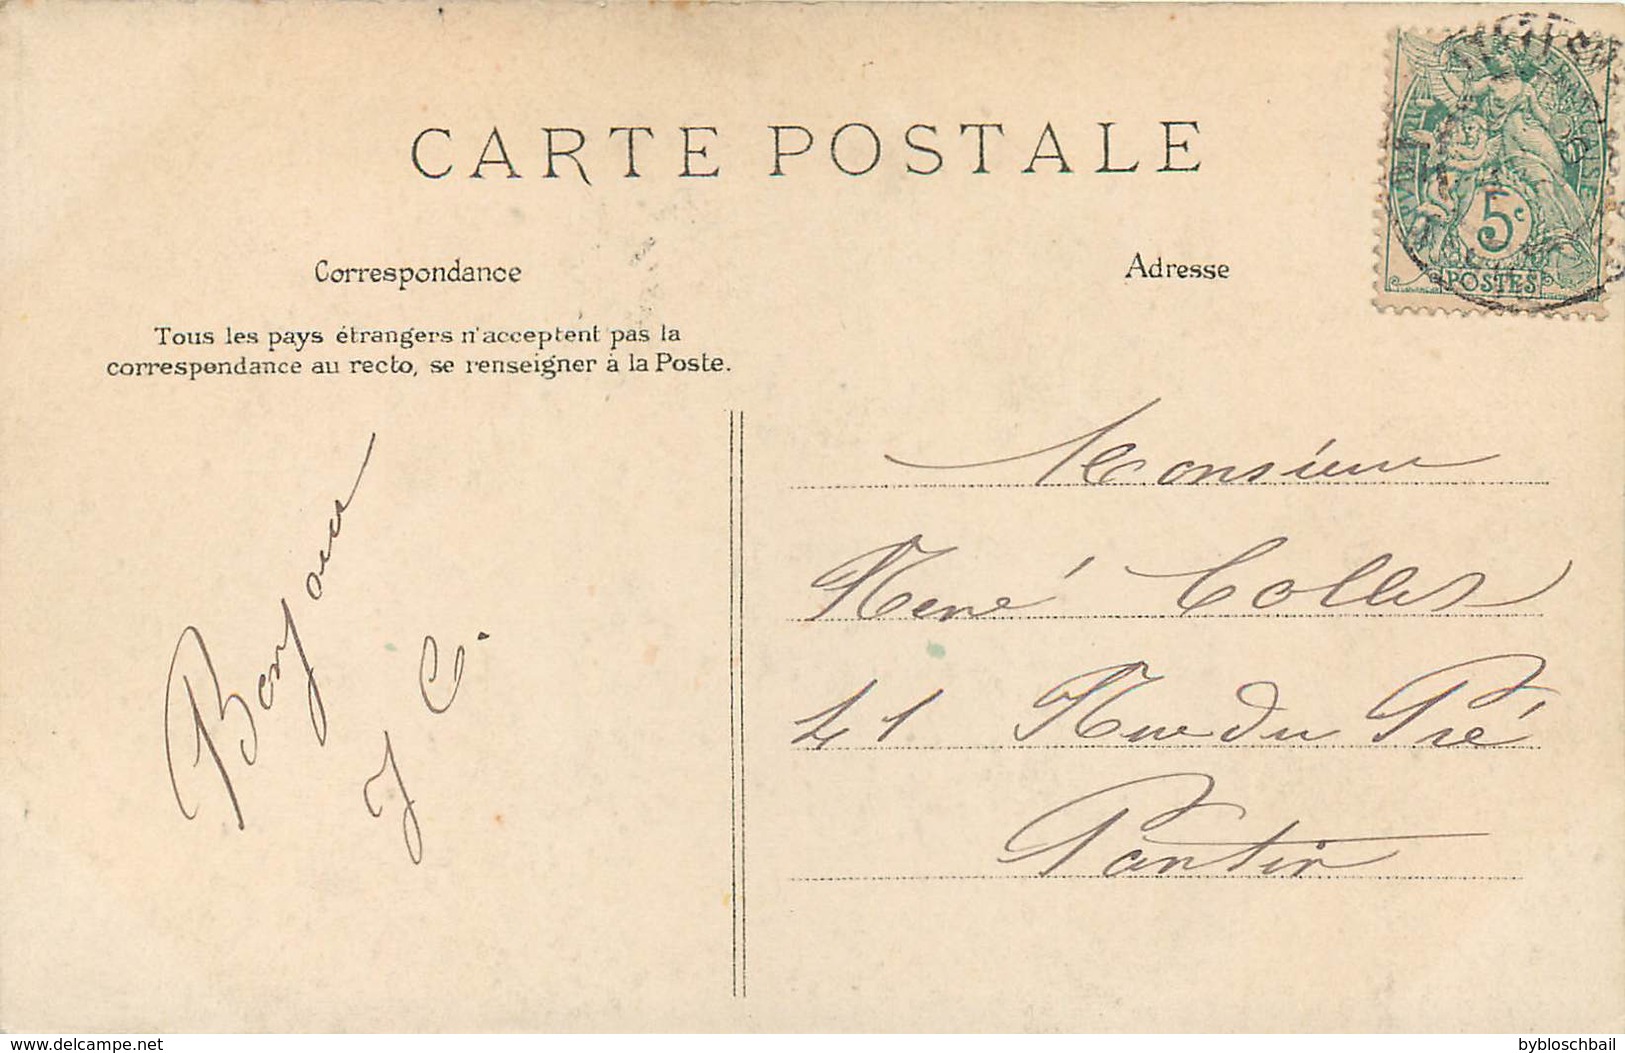 CARTE POSTALE
Correspondance
Adresse
Tous les pays étrangers n'acceptent pas la
correspondance au recto, se renseigner à la Poste.
5c
POSTES
Bonjour
J C.
Monsieur
René Colles
41 Rue du Pré
Pantin
www.delcampe.net
bybloschbail